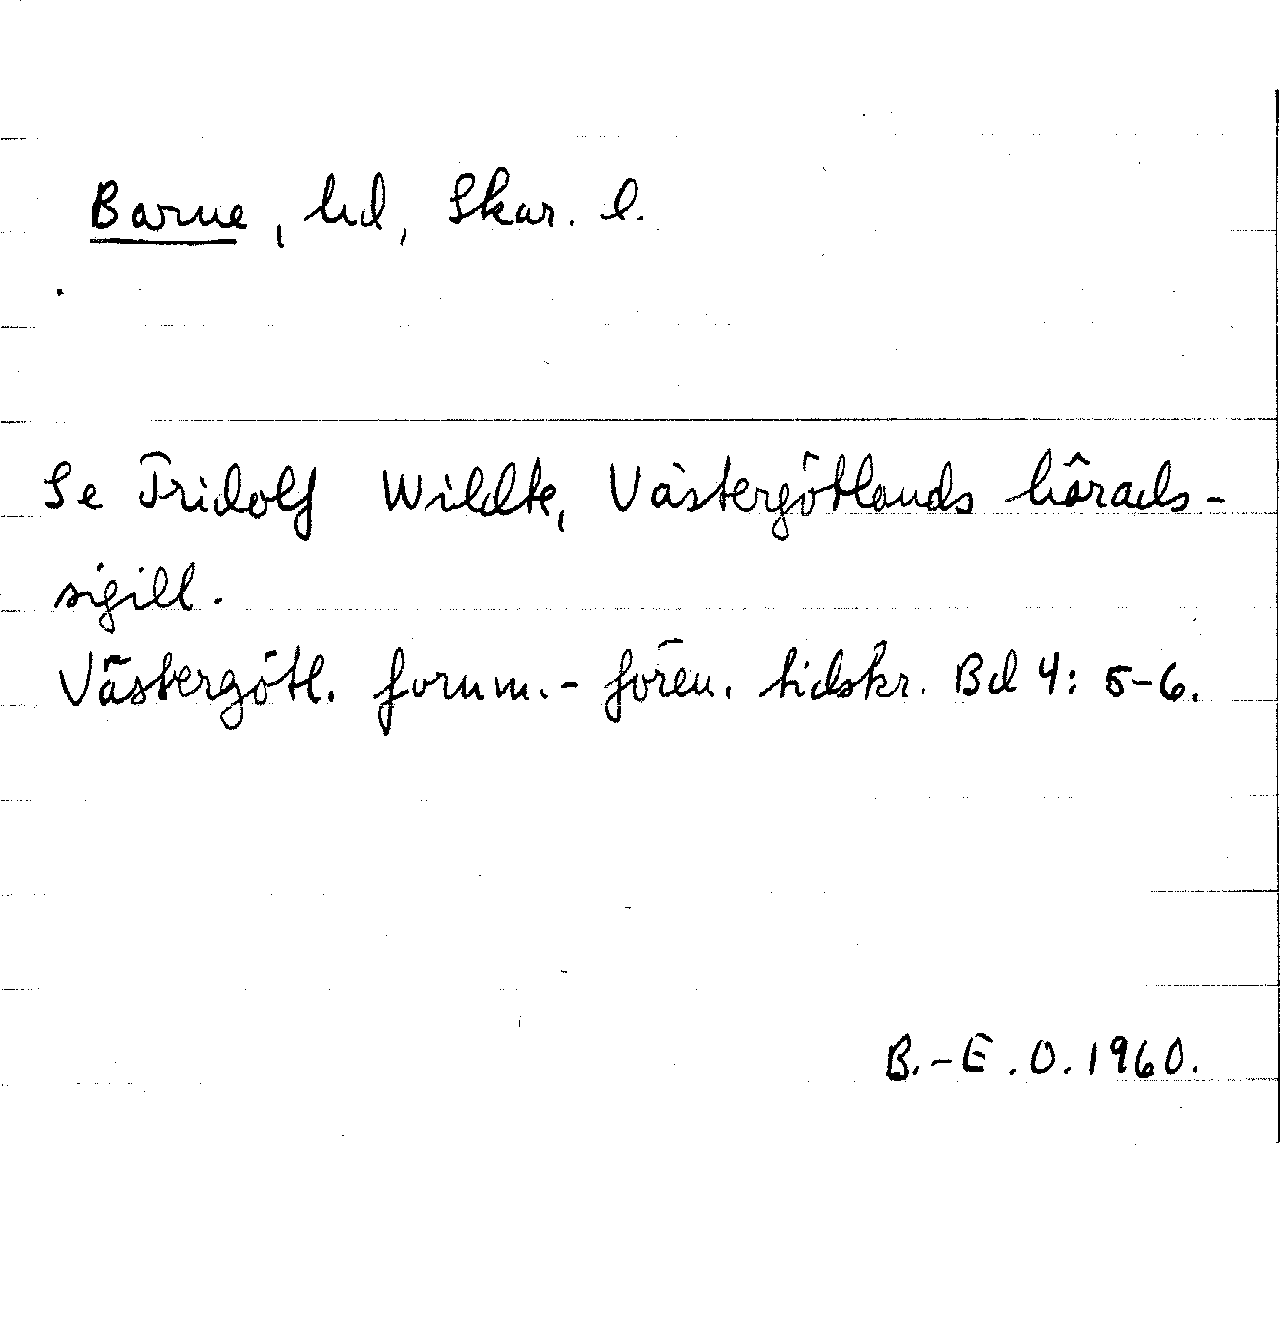 Barne, hd, Skar. l.
Se Fridolf Wildte, Västergötlands härads-
sigill.
Västergötl. fornm.-fören. tidskr. Bd 4: 5-6.
B.-E.O.1960.